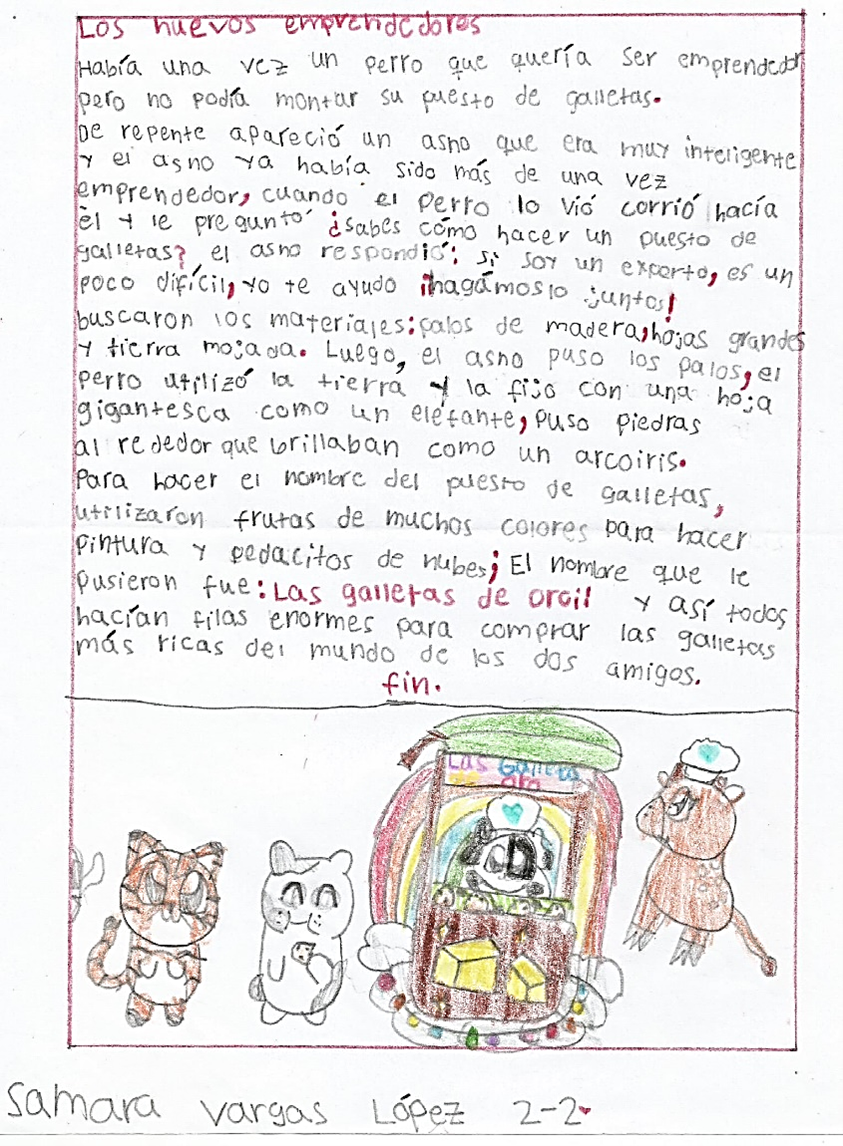 Los nuevos emprendedores
Había una vez un perro que quería ser emprendedor
pero no podía montar su puesto de galletas.
De repente apareció un asno que era muy inteligente
y el asno ya había sido más de una vez
emprendedor, cuando el perro lo vió corrió hacía
él y le pregunto ¿sabes cómo hacer un puesto de
galletas? el asno respondió: si soy un experto, es un
poco difícil, yo te ayudo ¡hagámoslo juntos!
buscaron los materiales: palos de madera, hojas grandes
y tierra mojada. Luego, el asno puso los palos, el
perro utilizó la tierra y la fijo con una hoja
gigantesca como un elefante, puso piedras
al rededor que brillaban como un arcoiris.
Para hacer el nombre del puesto de galletas,
utilizaron frutas de muchos colores para hacer
pintura y pedacitos de nubes; El nombre que le
pusieron fue: Las galletas de oro!! y así todos
hacían filas enormes para comprar las galletas
más ricas del mundo de los dos amigos.
fin.
Las Galleta
de oro
Samara Vargas López 2-2.